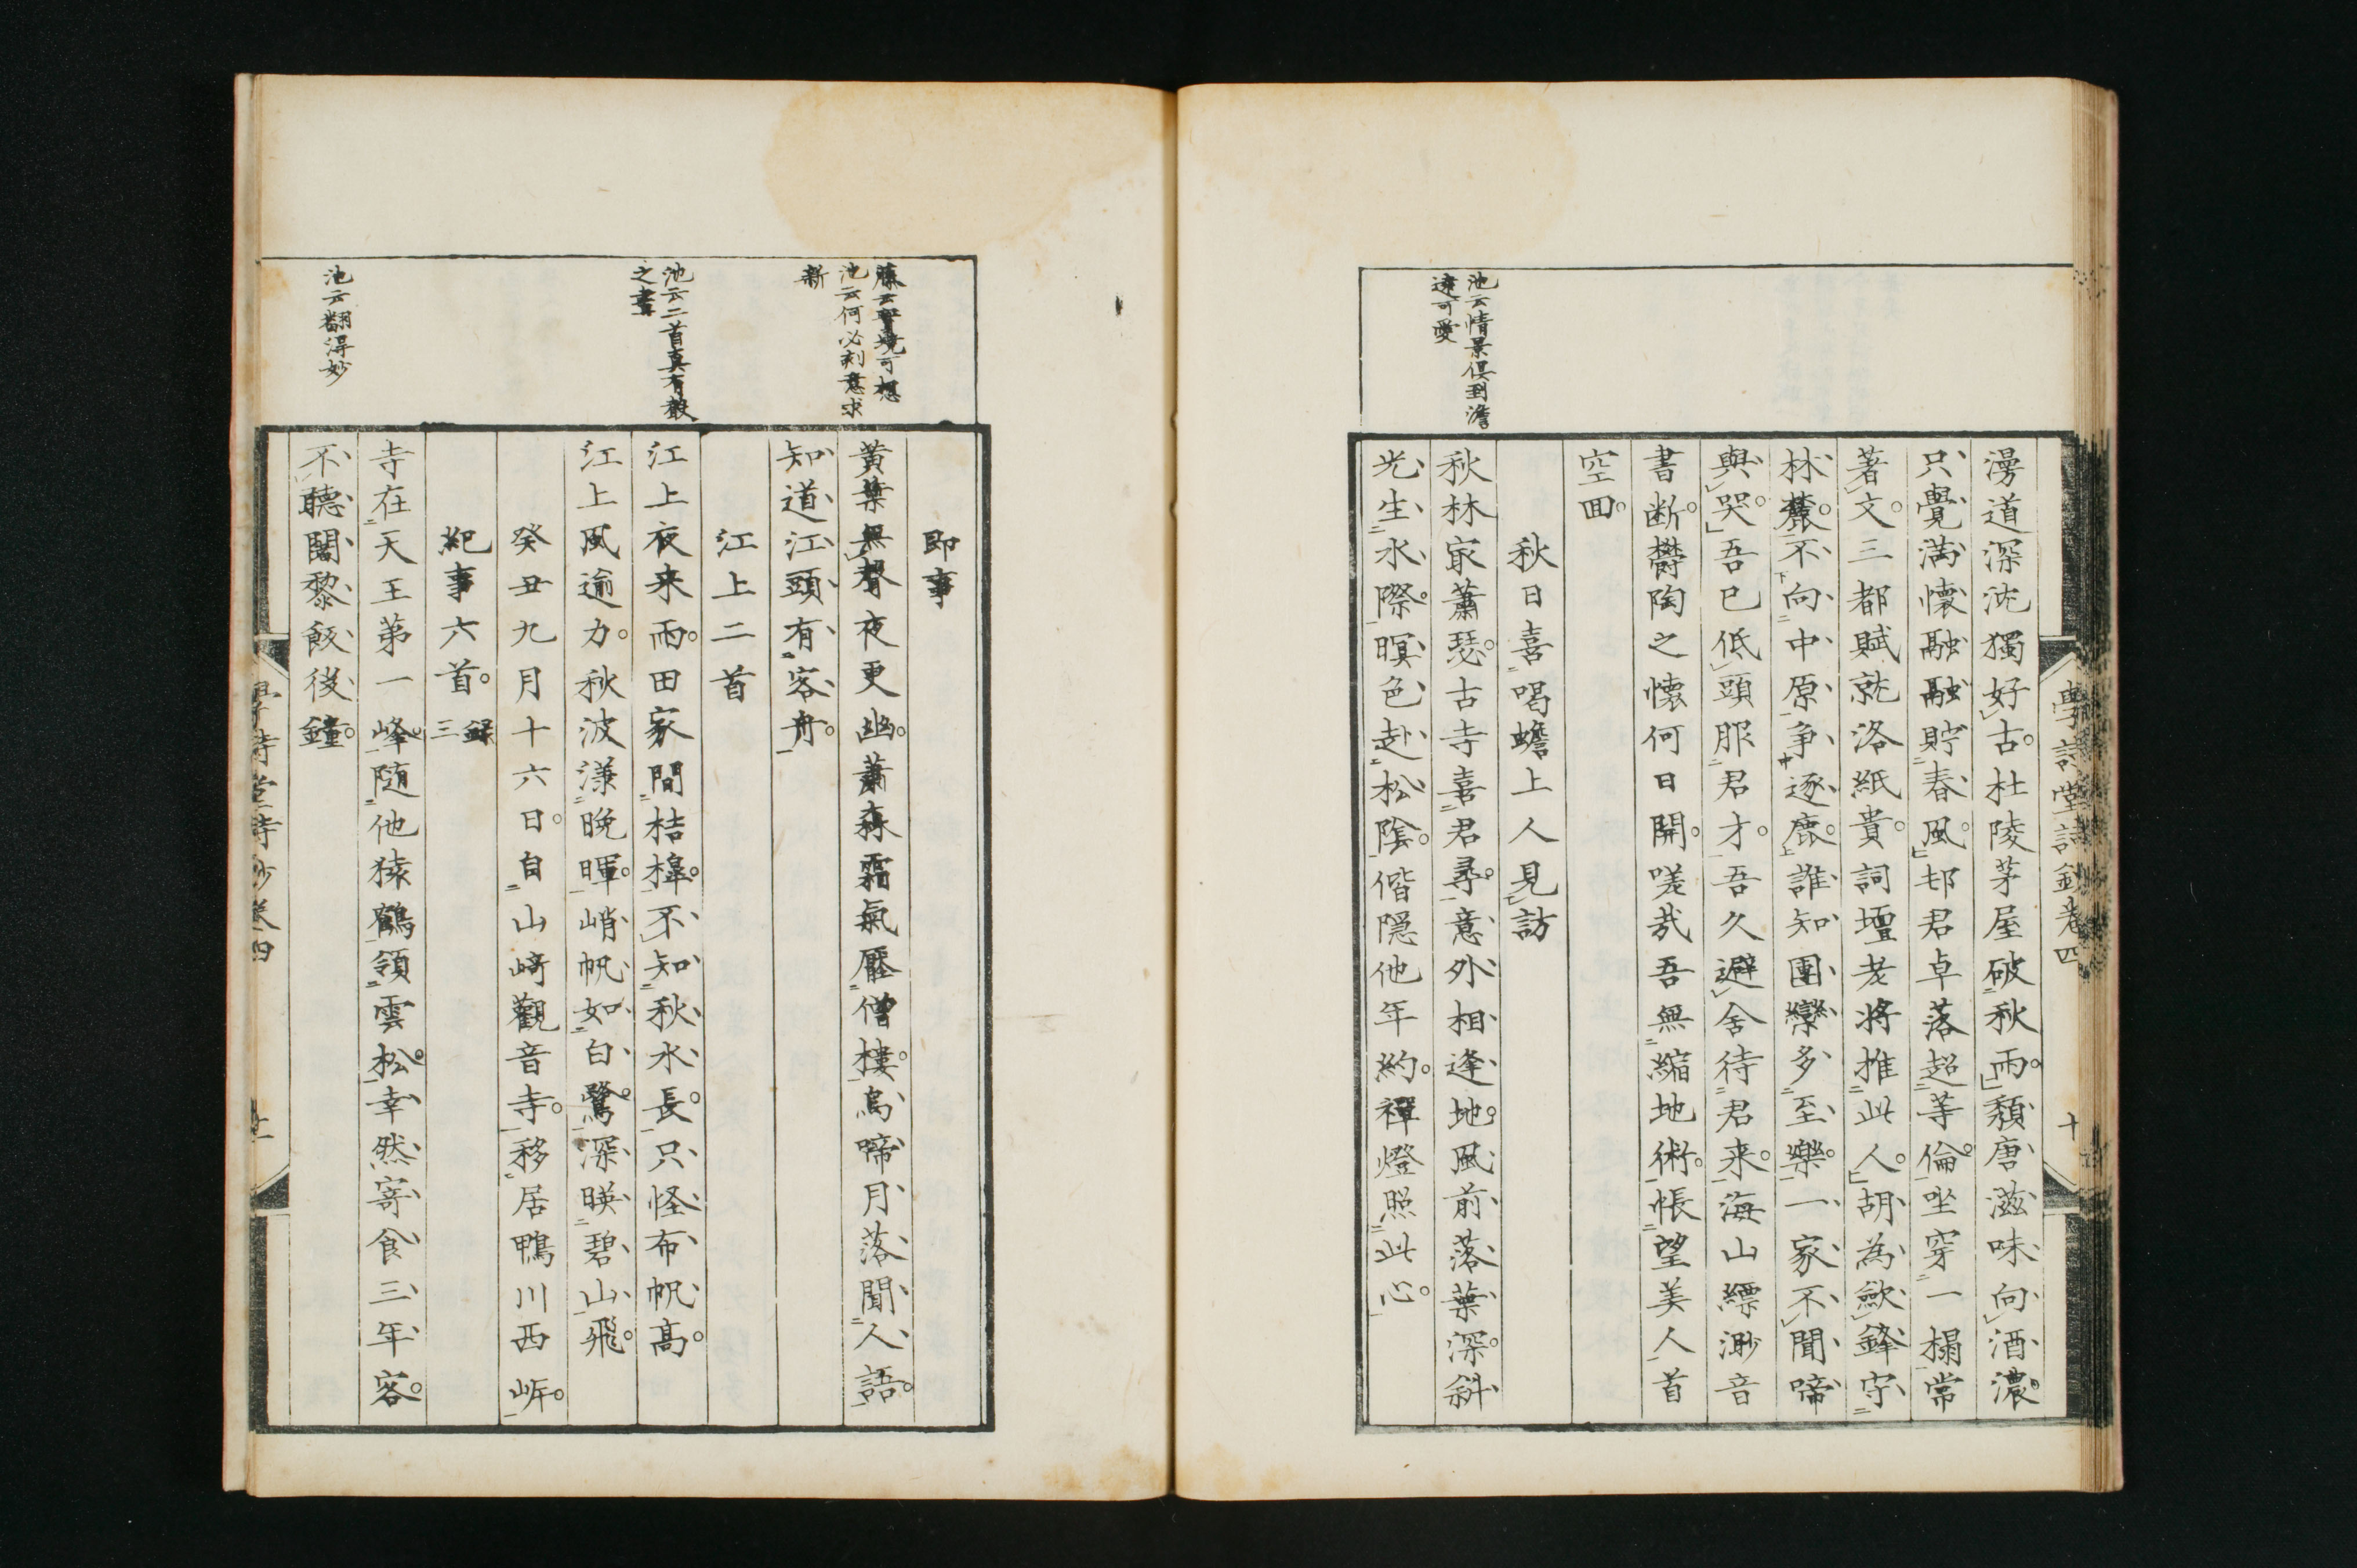 學詩堂詩鈔卷四
十
漫道深沈獨好古杜陵茅屋破秋雨頽唐滋味向酒濃
只覺滿懷融融貯春風邨君卓落超等倫坐穿一榻常
著文三都賦就洛紙貴詞壇老將推此人胡為斂鋒守
林麓不向中原爭逐鹿誰知團欒多至樂一家不聞啼
與哭吾已低頭服君才吾久避舍待君来海山縹渺音
書断欝陶之懐何日開嗟㢤吾無縮地術悵望美人首
空囬
秋日喜喝蟾上人見訪
池云情景俱到澹
遠可愛
秋林寂蕭瑟古寺喜君尋意外相逢地風前落葉深斜
光生水際暝色赴松陰偕隠他年約禪燈照此心
即事
藤云聖境可想
池云何必刻意求
新
黄葉無聲夜更幽蕭森霜氣壓僧樓烏啼月落聞人語
知道江頭有客舟
江上二首
池云二首真有聲
之畫
江上夜来雨田家間桔橰不知秋水長只怪布帆高
江上風逾力秋波漾晩暉峭帆如白鷺深暎碧山飛
癸丑九月十六日自山﨑觀音寺移居鴨川西岸
紀事六首録三
池云翻得妙
寺在天王第一峰随他猿鶴領雲松幸然寄食三年客
不聽闍黎飯後鐘
學詩堂詩鈔卷四